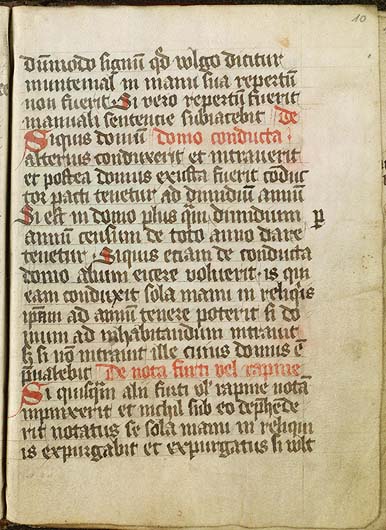 10
dummodo signum qd wlgo dicitur
muntemal in manu sua repertu
non fuerit Si vero repertu fuerit
manuali sentencie subiacebit De
Siquis domum domo conducta
alterius conduxerit et intrauerit
et postea domus exusta fuerit coduc
tor pacti tenetur ad dimidium annu
Si est in domo plus qm dimidium p
annum censum de toto anno dare
tenetur Siquis etiam de conducta
domo alium eicere voluerit is qui
eam conduxit sola manu in reliqis
ipam ad annum tenere poterit si do
mum ad inhabitandum intrauit
h si non intrauit ille cuius domus e
pualebit De nota furti vel rapine
Si quisqm alii furti vl rapine nota
inpinxerit et nichil sub eo dephede
rit notatus se sola manu in reliqui
is expurgabit et expurgatus si wlt